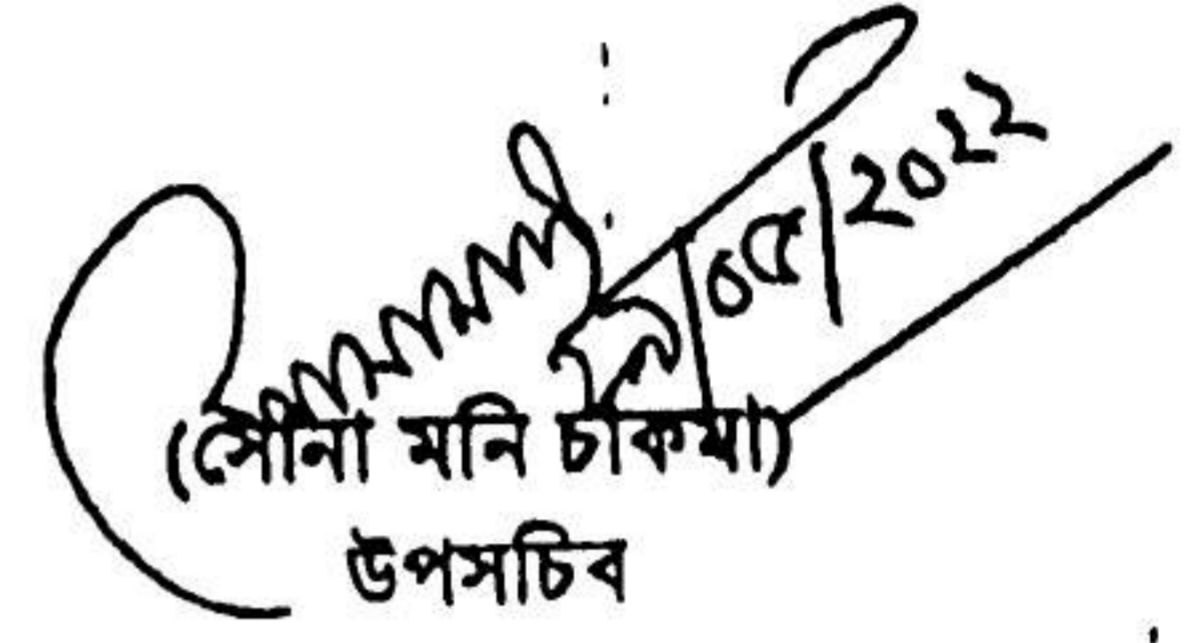 /০৫/২০২২
(সোনা মনি চাকমা)
উপসচিব